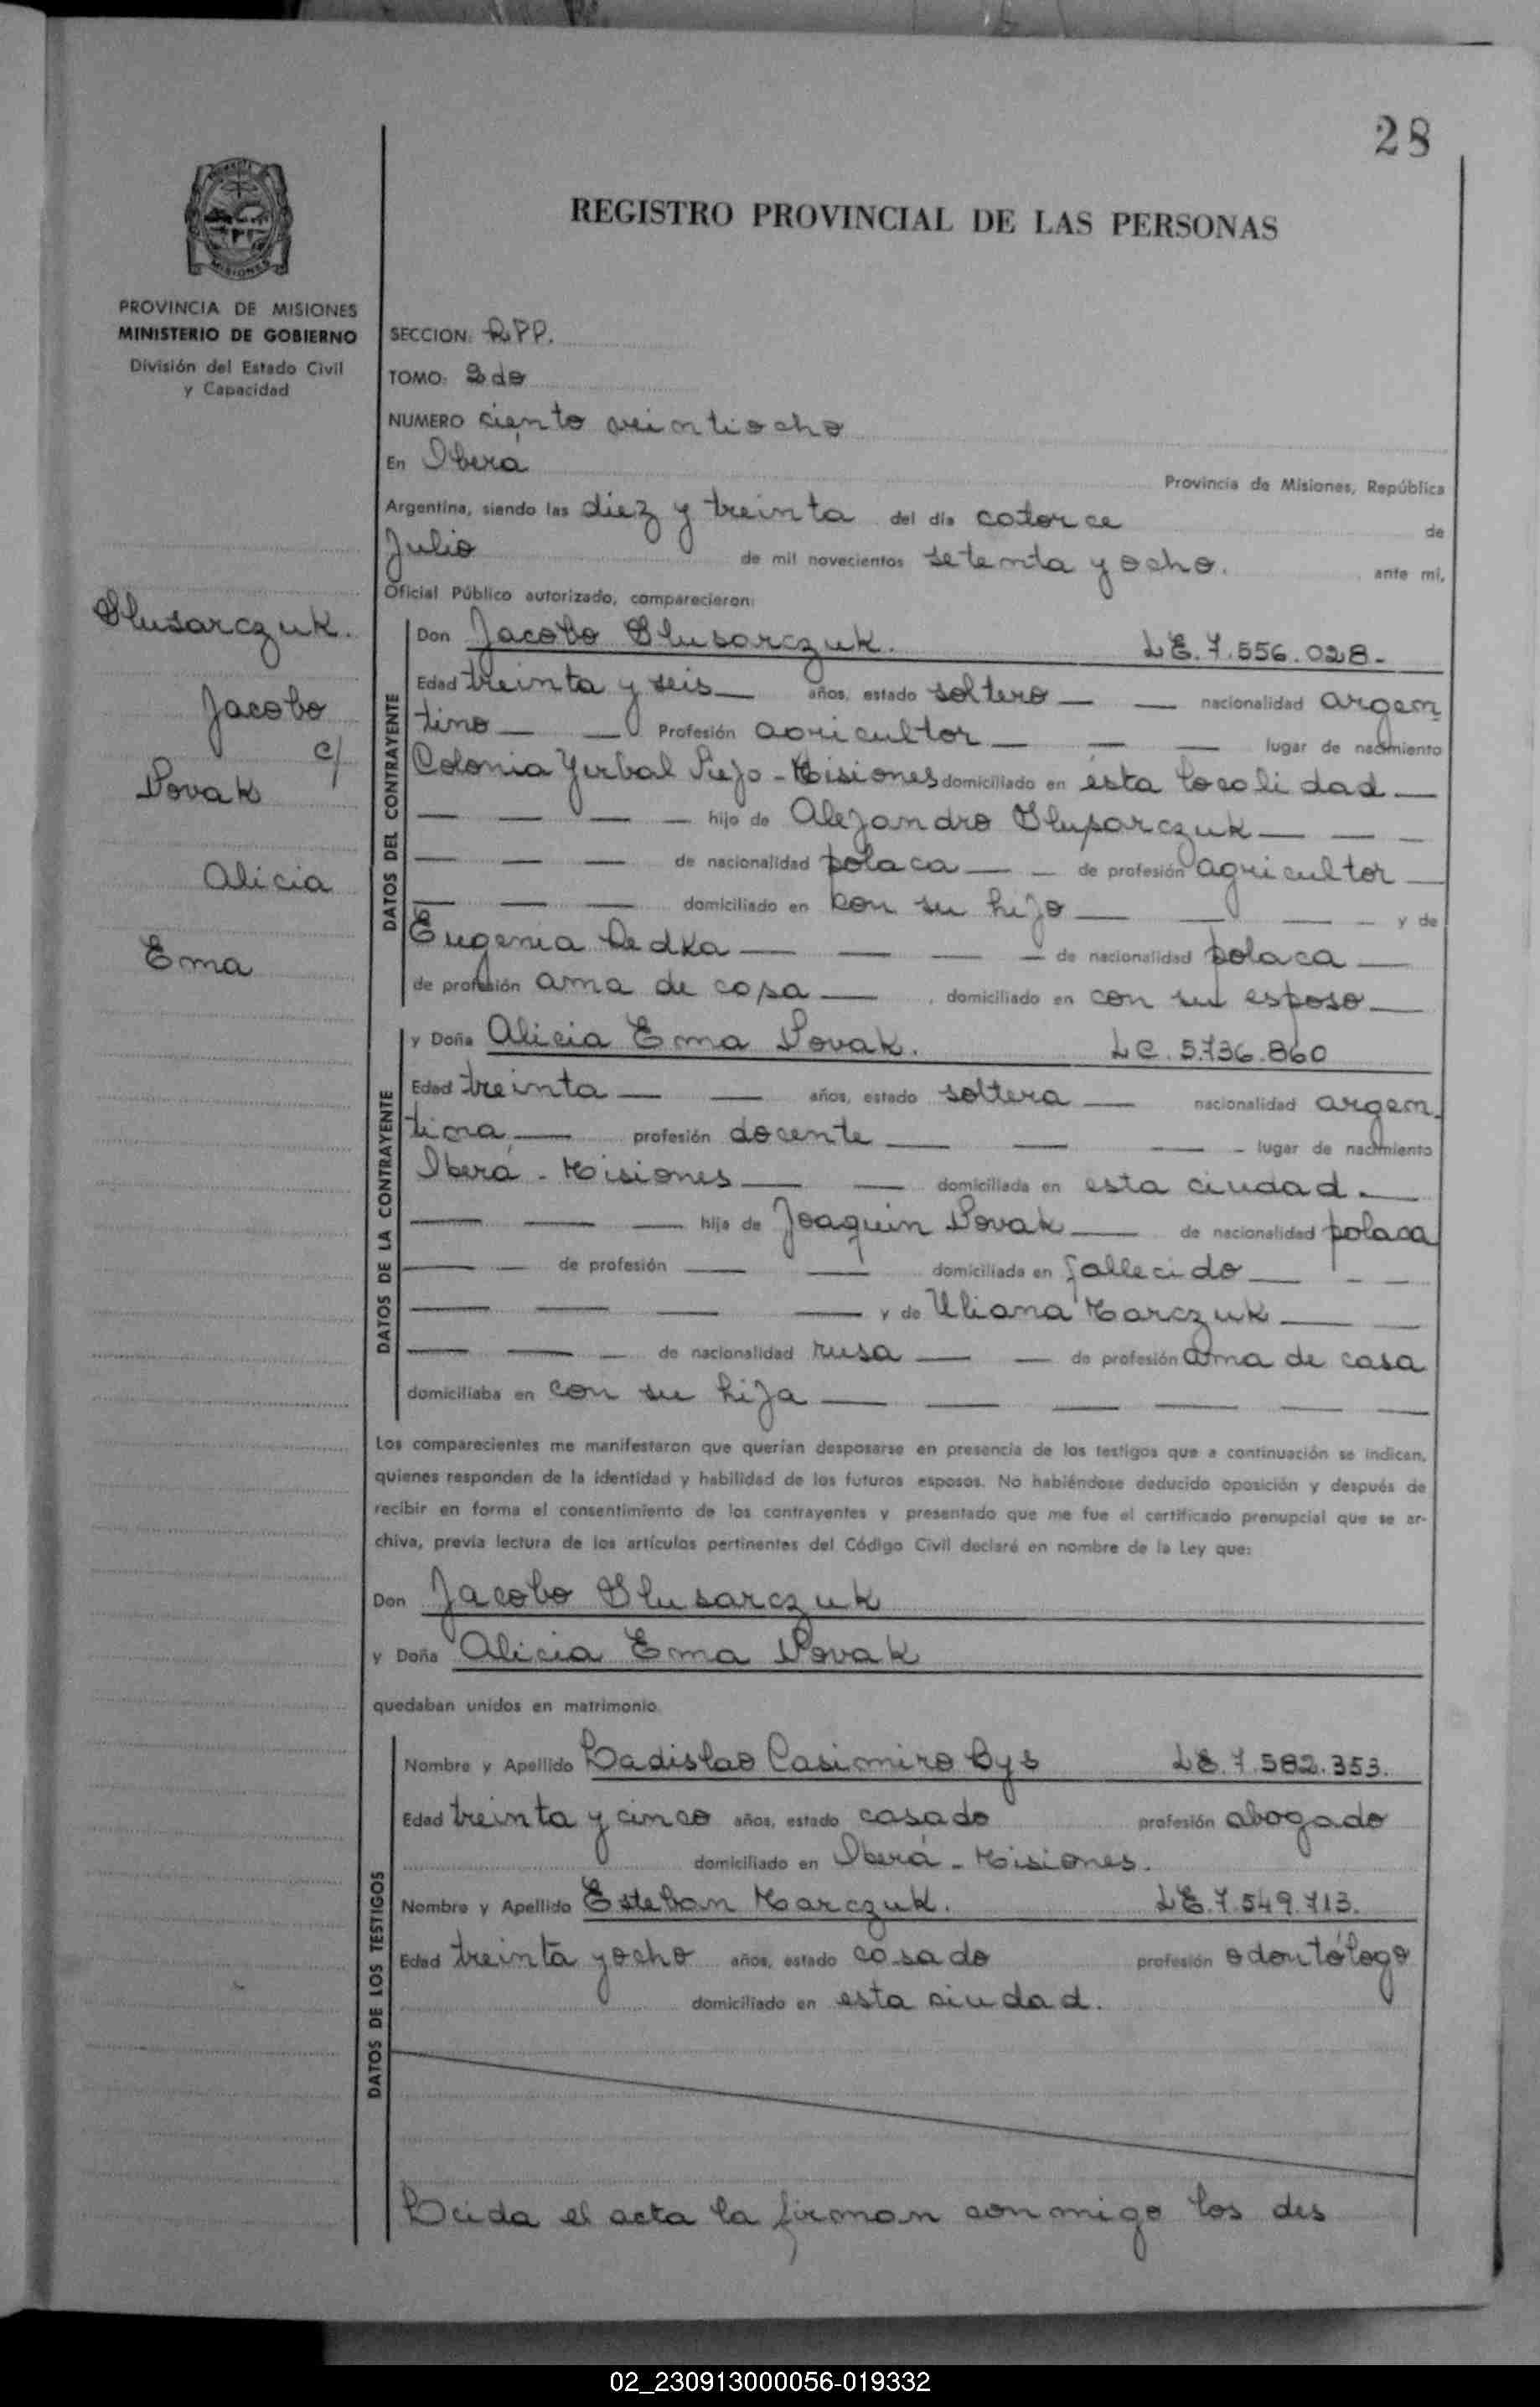 28
REGISTRO PROVINCIAL DE LAS PERSONAS
MISIONES
PROVINCIA DE MISIONES
MINISTERIO DE GOBIERNO
División del Estado Civil
y Capacidad
SECCION: R.P.P.
TOMO: 2do
NUMERO ciento veintiocho
En Oberá Provincia de Misiones, República
Argentina, siendo las diez y treinta del día catorce de
Julio de mil novecientos setenta y ocho. ante mí,
Oficial Público autorizado, comparecieron:
Slusarczuk.
Jacobo
c/
Novak
Alicia
Ema
DATOS DEL CONTRAYENTE
Don Jacobo Slusarczuk. L.E. 7.556.028.-
Edad treinta y seis — años, estado soltero — — nacionalidad argen
tino — — Profesión agricultor — — — lugar de nacimiento
Colonia Yerbal Viejo - Misiones domiciliado en ésta localidad —
— — — — hijo de Alejandro Slusarczuk — — —
— — — de nacionalidad polaca — — de profesión agricultor —
— — — domiciliado en con su hijo — — — — y de
Eugenia Dedka — — — — de nacionalidad polaca —
de profesión ama de casa — , domiciliado en con su esposo —
DATOS DE LA CONTRAYENTE
y Doña Alicia Ema Novak. L.C. 5.736.860
Edad treinta — — años, estado soltera — nacionalidad argen-
tina — profesión docente — — — - lugar de nacimiento
Oberá - Misiones — — domiciliada en esta ciudad. —
— — — hija de Joaquin Novak — de nacionalidad polaca
— — de profesión — — domiciliada en fallecido — — —
— — — — y de Uliana Marczuk — —
— — — de nacionalidad rusa — — de profesión ama de casa
domiciliaba en con su hija — — — — — —
Los comparecientes me manifestaron que querían desposarse en presencia de los testigos que a continuación se indican,
quienes responden de la identidad y habilidad de los futuros esposos. No habiéndose deducido oposición y después de
recibir en forma el consentimiento de los contrayentes y presentado que me fue el certificado prenupcial que se ar-
chiva, previa lectura de los artículos pertinentes del Código Civil declaré en nombre de la Ley que:
Don Jacobo Slusarczuk
y Doña Alicia Ema Novak
quedaban unidos en matrimonio.
DATOS DE LOS TESTIGOS
Nombre y Apellido Ladislao Casimiro Bys L.E. 7.582.353.
Edad treinta y cinco años, estado casado profesión abogado
domiciliado en Oberá - Misiones.
Nombre y Apellido Esteban Marczuk. L.E. 7.549.713.
Edad treinta y ocho años, estado casado profesión odontólogo
domiciliado en esta ciudad.
Leída el acta la firman conmigo los des
02_230913000056-019332